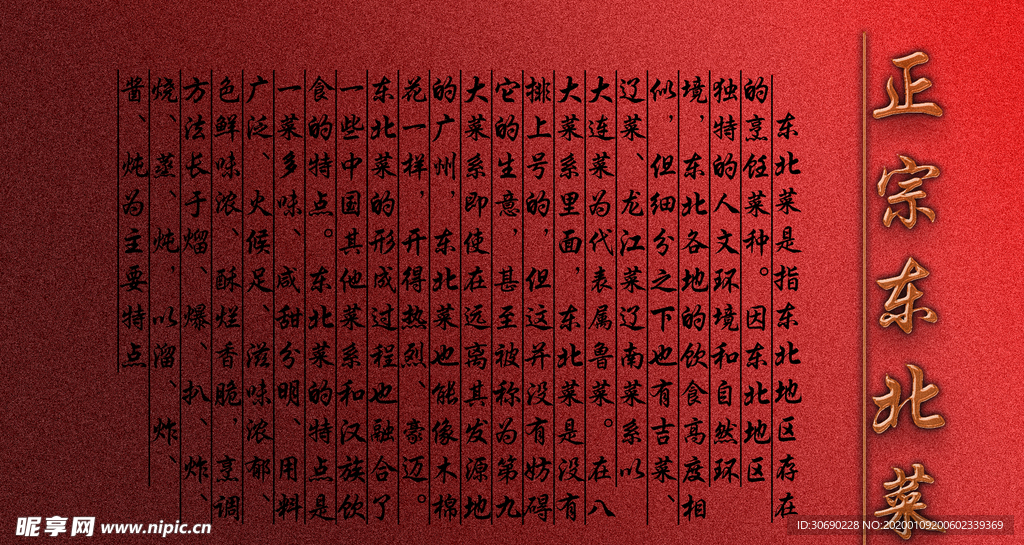 正宗东北菜
东北菜是指东北地区存在
的烹饪菜种。因东北地区
独特的人文环境和自然环
境，东北各地的饮食高度相
似，但细分之下也有吉菜、
辽菜、龙江菜辽南菜系以
大连菜为代表属鲁菜。在八
大菜系里面，东北菜是没有
排上号的，但这并没有妨碍
它的生意，甚至被称为第九
大菜系即使在远离其发源地
的广州，东北菜也能像木棉
花一样，开得热烈、豪迈。
东北菜的形成过程也融合了
一些中国其他菜系和汉族饮
食的特点。东北菜的特点是
一菜多味、咸甜分明、用料
广泛、火候足、滋味浓郁、
色鲜味浓、酥烂香脆，烹调
方法长于熘、爆、扒、炸、
烧、蒸、炖，以溜、炸、
酱、炖为主要特点
昵享网 www.nipic.cn
ID:30690228 NO:20200109200602339369